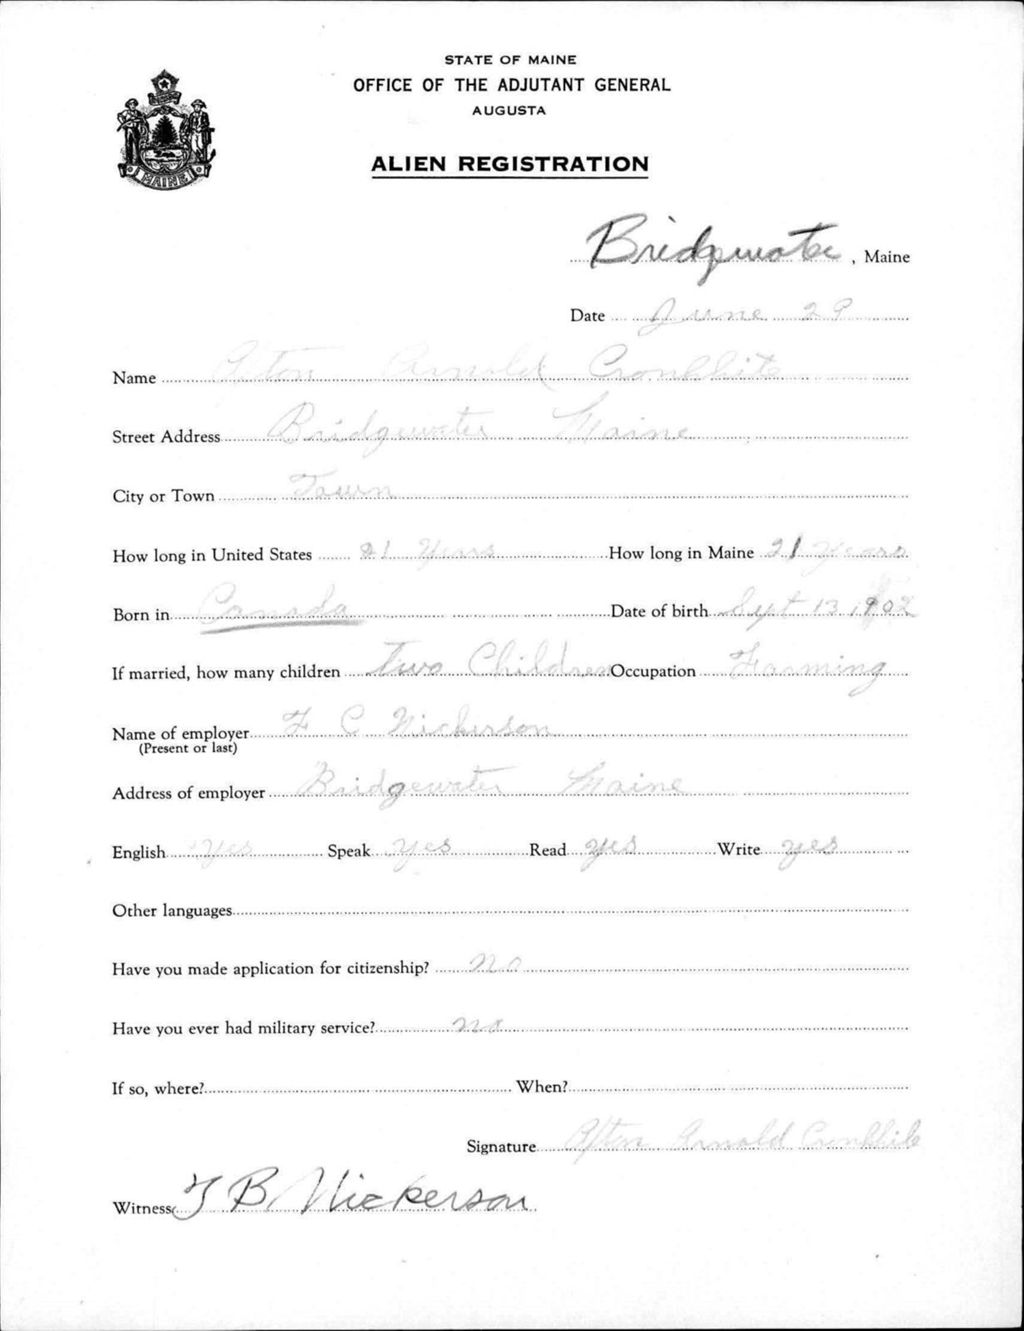 STATE OF MAINE
OFFICE OF THE ADJUTANT GENERAL
AUGUSTA
MAINE
ALIEN REGISTRATION
Bridgewate, Maine
Date June 29
Name Afton Arnold Cronkhite
Street Address Bridgewater Maine
City or Town Town
How long in United States 21 Years How long in Maine 21 Years
Born in Canada Date of birth Sept 13, 1902
If married, how many children Two Children Occupation Farming
Name of employer F C Nickerson
(Present or last)
Address of employer Bridgewater Maine
English Yes Speak yes Read yes Write yes
Other languages
Have you made application for citizenship? No
Have you ever had military service? no
If so, where? When?
Signature Afton Arnold Cronkhite
Witness F B Nickerson